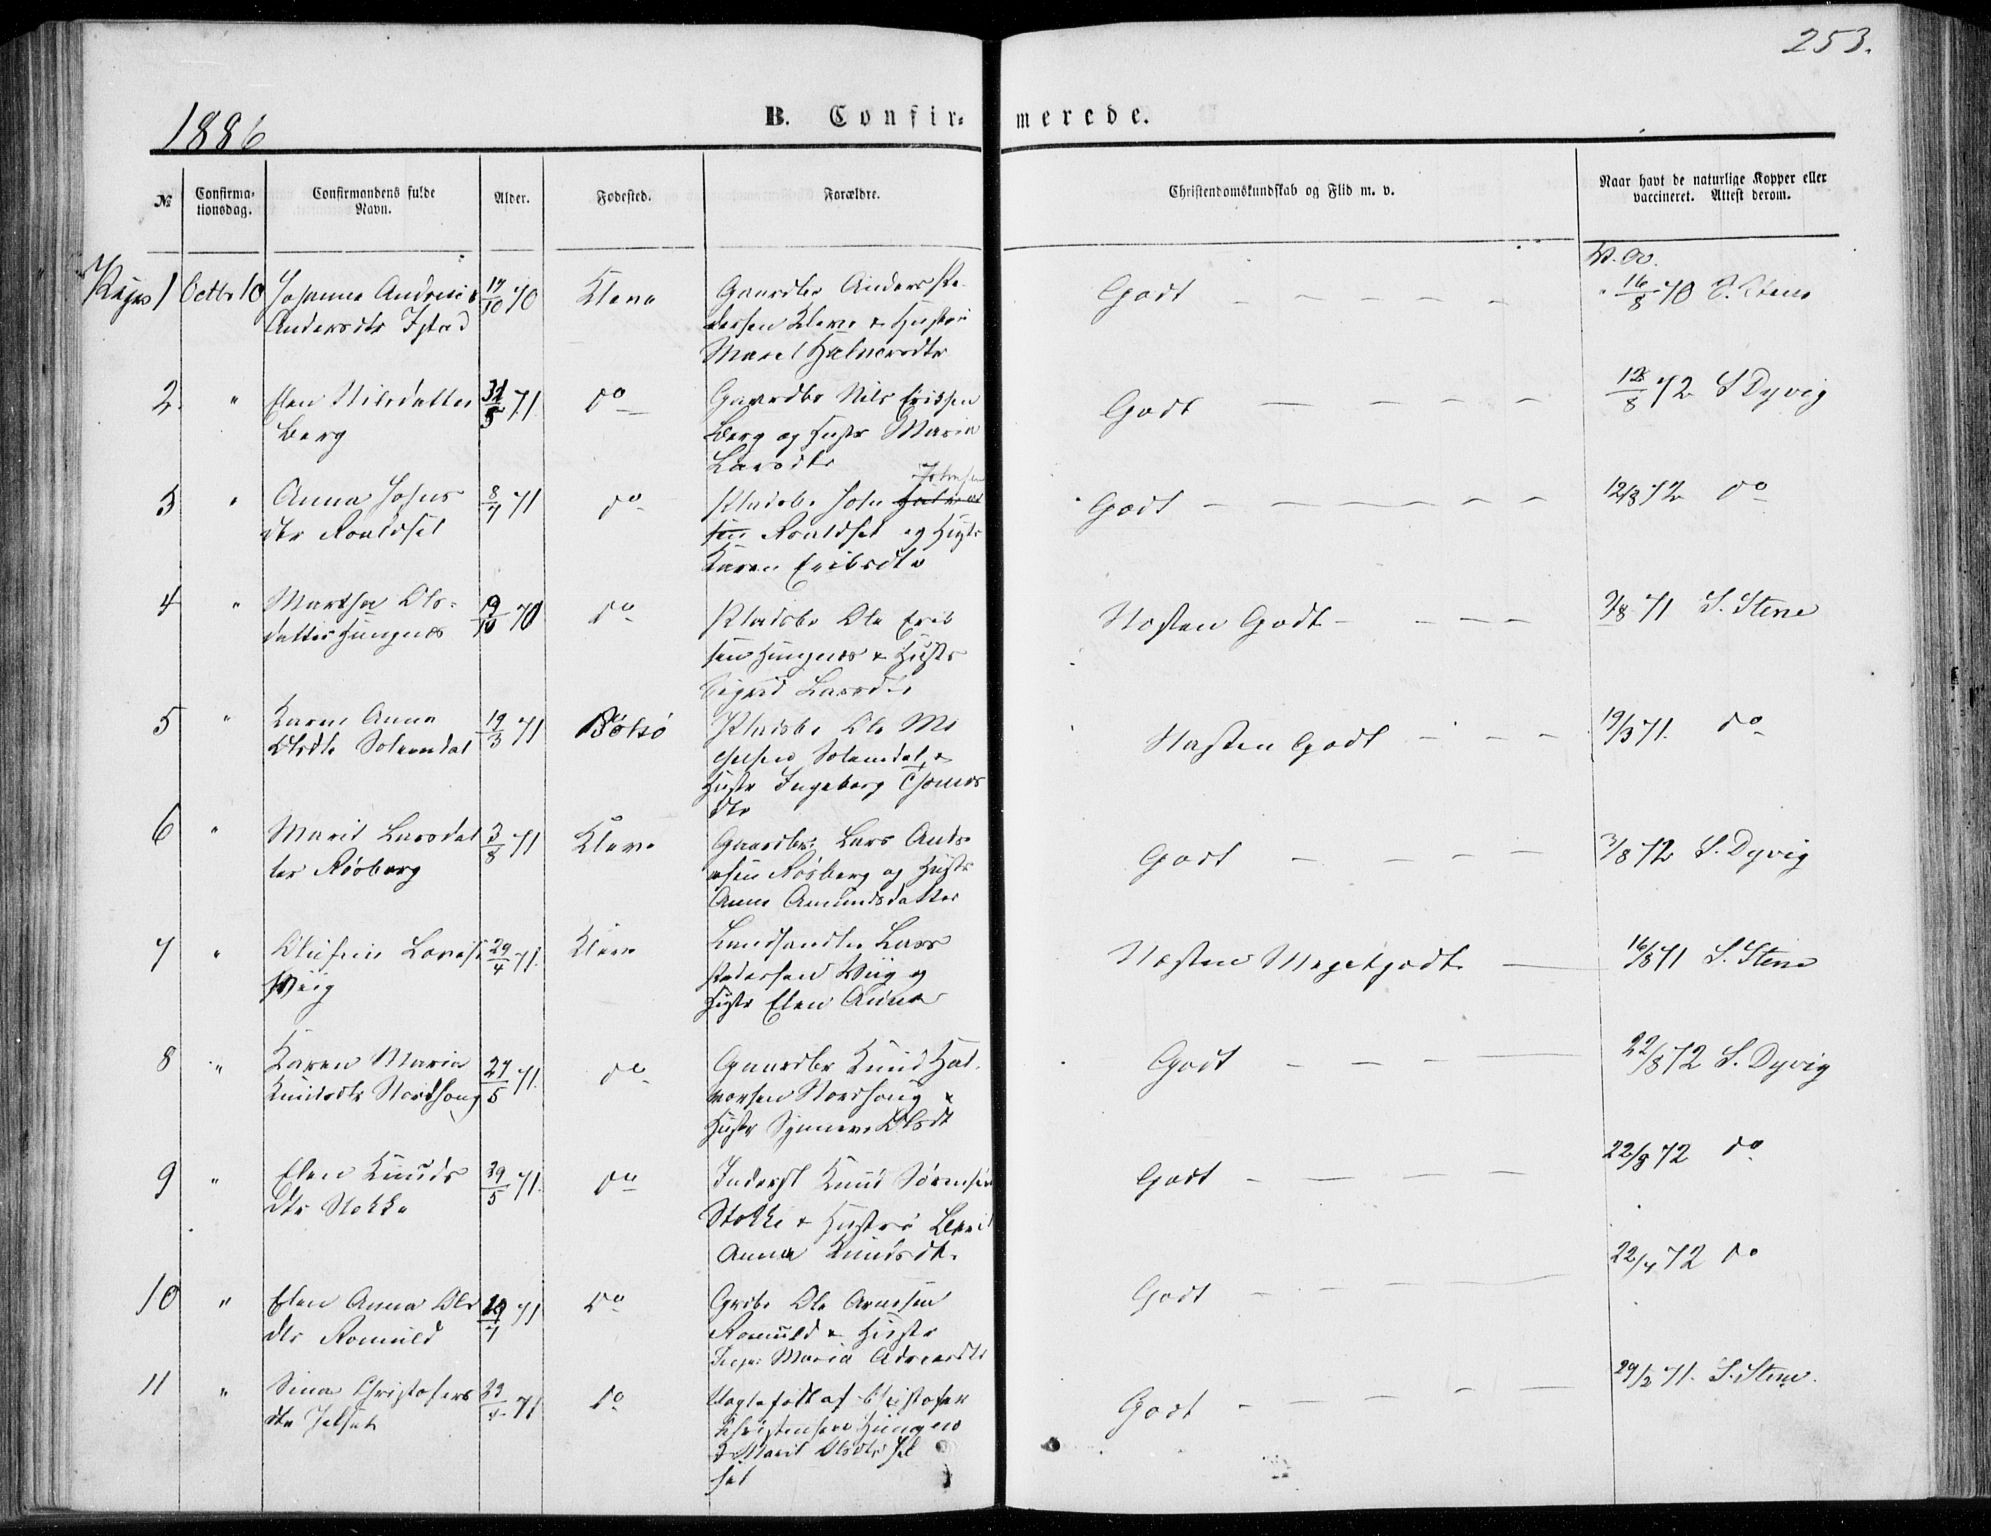 253.
1886
B. Confir- merede.
№
Confirma-
tionsdag.
Confirmandens fulde
Navn.
Alder.
Fødested.
Forældre.
Christendomskundskab og Flid m. v.
Naar havt de naturlige Kopper eller
vaccineret. Attest derom.
Piger 1 Octbr 10 Johanna Andrea
Andersdtr Istad
17/10 70
Kleve
Gaardbr Anders Pe-
dersen Kleve & Hustro
Marel Halvorsdtr
Godt
16/8 70 S. Stene
2 " Elen Nilsdatter
Berg
31/5 71
do
Gaardbr Nils Eriksen
Berg og Hustr Maria
Larsdtr
Godt
12/8 72 S Dyvig
3 " Anna Johns
dtr Roaldset
8/7 71
do
Pladsbr John
Roaldset og Hustr
Karen Eriksdtr
Godt
12/8 72 do
4 " Martha Ols-
datter Hungnes
9/10 70
do
Pladsbr Ole Erik
sen Hungnes & Hustr
Sigrid Larsdtr
Næsten Godt
2/8 71 S. Stene
5 " Karen Anna
Olsdtr Solemdal
19/3 71
Bolsø
Pladsbr Ole Mi
chelsen Solemdal &
Hustr Ingeborg Thomas
dtr
Næsten Godt
19/3 71. do
6 " Marit Larsdat
ter Røsberg
3/8 71
Kleve
Gaardbr: Lars Andr-
esen Røsberg og Hustr
Anne Amundsdatter
Godt
3/8 72 S. Dyvig
7 " Olufine Lovise
Wiig
29/4 71.
Kleve
Landhandler Lars
Pedersen Wiig og
Hustr Elen Anna
Næsten Megetgodt
16/8 71 S. Stene
8 " Karen Maria
Knudsdtr Nordhoug
27/5 71.
do
Gaardbr Knud Hal-
vorsen Nordhoug &
Hustr Synneve Olsdt
Godt
22/8 72 S. Dyvig
9 " Elen Knuds
dtr Stokke
29/5 71.
do
Inderst Knud Sørensen
Stokke & Hustro Berit
Anna Knudsdt.
Godt
22/8 72 do
10 " Elen Anna Ols
dtr Romuld
71
do
Grbr Ole Arnesen
Romuld & Hustr
Maria Andreasdtr
Godt
22/7 72 do
11 " Sina Christofers
dtr Jelset
71
do
Uægtefødt af Christofer
Christensen Hungnes
& Marit Olsdtr Jel
set
Godt
29/2 71. S. Stene.